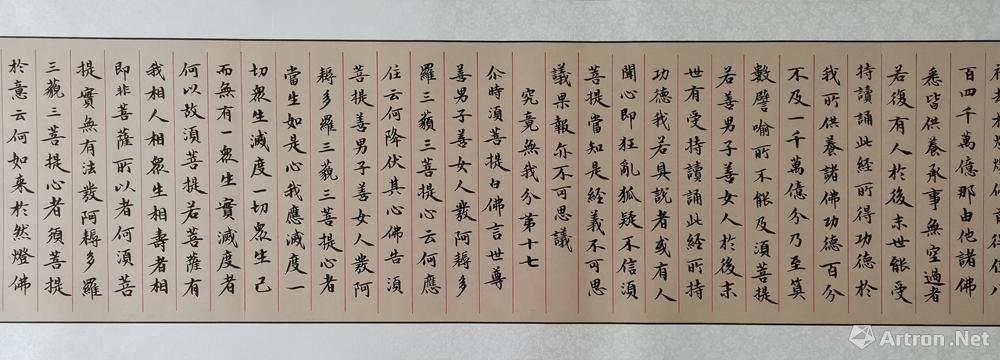 百四千萬億那由他諸佛
悉皆供養承事無空過者
若復有人於後末世能受
持讀誦此經所得功德於
我所供養諸佛功德百分
不及一千萬億分乃至筭
數譬喻所不能及須菩提
若善男子善女人於後末
世有受持讀誦此經所持
功德我若具說者或有人
聞心即狂亂狐疑不信須
菩提當知是經義不可思
議果報亦不可思議
究竟無我分第十七
尒時須菩提白佛言世尊
善男子善女人發阿耨多
羅三藐三菩提心云何應
住云何降伏其心佛告須
菩提善男子善女人發阿
耨多羅三藐三菩提心者
當生如是心我應滅度一
切眾生滅度一切眾生已
而無有一眾生實滅度者
何以故須菩提若菩薩有
我相人相眾生相壽者相
即非菩薩所以者何須菩
提實無有法發阿耨多羅
三藐三菩提心者須菩提
於意云何如來於然燈佛
Artron.Net